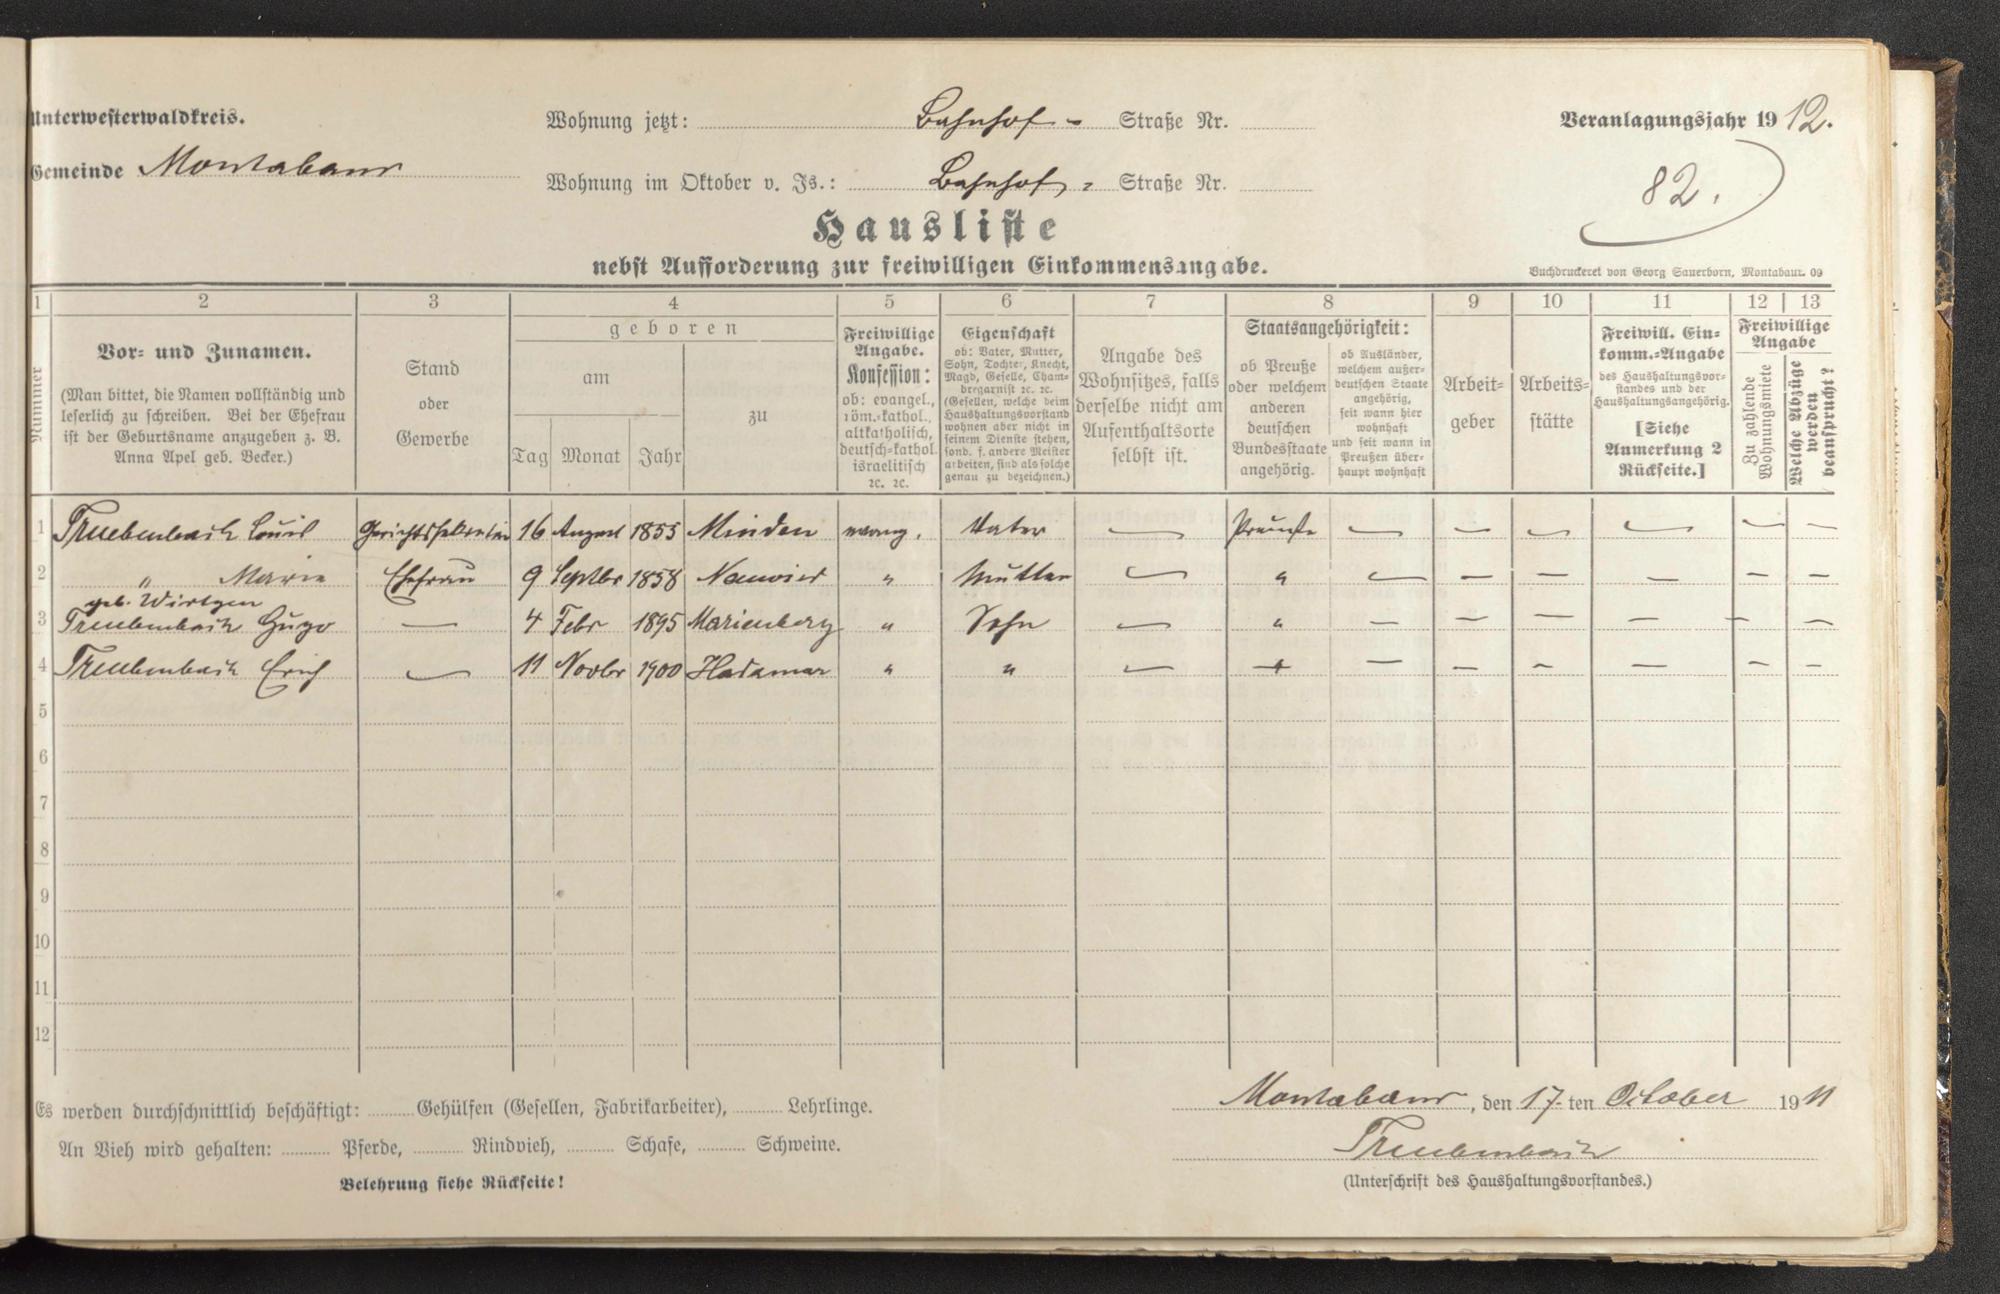 Unterwesterwaldkreis.
Gemeinde Montabaur
Wohnung jetzt: Bahnhof- Straße Nr.
Wohnung im Oktober v. Js.: Bahnhof- Straße Nr.
Veranlagungsjahr 1912.
82.
Hausliste
nebst Aufforderung zur freiwilligen Einkommensangabe.
Buchdruckerei von Georg Sauerborn, Montabaur. 09
1 2 3 4 5 6 7 8 9 10 11 12 13
Nummer
Vor- und Zunamen.
(Man bittet, die Namen vollständig und
leserlich zu schreiben. Bei der Ehefrau
ist der Geburtsname anzugeben z. B.
Anna Apel geb. Becker.)
Stand
oder
Gewerbe
geboren
am
Tag Monat Jahr
zu
Freiwillige
Angabe.
Konfession:
ob: evangel.,
röm.-kathol.,
altkatholisch,
deutsch-kathol.
israelitisch
ꝛc. ꝛc.
Eigenschaft
ob: Vater, Mutter,
Sohn, Tochter, Knecht,
Magd, Geselle, Cham-
bregarnist ꝛc. ꝛc.
(Gesellen, welche beim
Haushaltungsvorstand
wohnen aber nicht in
seinem Dienste stehen,
sond. f. andere Meister
arbeiten, sind als solche
genau zu bezeichnen.)
Angabe des
Wohnsitzes, falls
derselbe nicht am
Aufenthaltsorte
selbst ist.
Staatsangehörigkeit:
ob Preuße
oder welchem
anderen
deutschen
Bundesstaate
angehörig.
ob Ausländer,
welchem außer-
deutschen Staate
angehörig,
seit wann hier
wohnhaft
und seit wann in
Preußen über-
haupt wohnhaft
Arbeit-
geber
Arbeits-
stätte
Freiwill. Ein-
komm.-Angabe
des Haushaltungsvor-
standes und der
Haushaltungsangehörig.
[Siehe
Anmerkung 2
Rückseite.]
Freiwillige
Angabe
Zu zahlende
Wohnungsmiete
Welche Abzüge
werden
beansprucht?
1 Truebenbach Louis Gerichtssekretär 16 August 1855 Minden evang. Vater — Preuße — — — — — —
2 " Marie Ehefrau 9 Septbr 1858 Neuwied " Mutter — " — — — — — —
geb. Wirtgen
3 Truebenbach Hugo — 4 Febr 1895 Marienberg " Sohn — " — — — — — —
4 Truebenbach Erich — 11 Novbr 1900 Hadamar " " — " — — — — — —
5
6
7
8
9
10
11
12
Es werden durchschnittlich beschäftigt: Gehülfen (Gesellen, Fabrikarbeiter), Lehrlinge.
An Vieh wird gehalten: Pferde, Rindvieh, Schafe, Schweine.
Belehrung siehe Rückseite!
Montabaur, den 17-ten October 1911
Truebenbach
(Unterschrift des Haushaltungsvorstandes.)